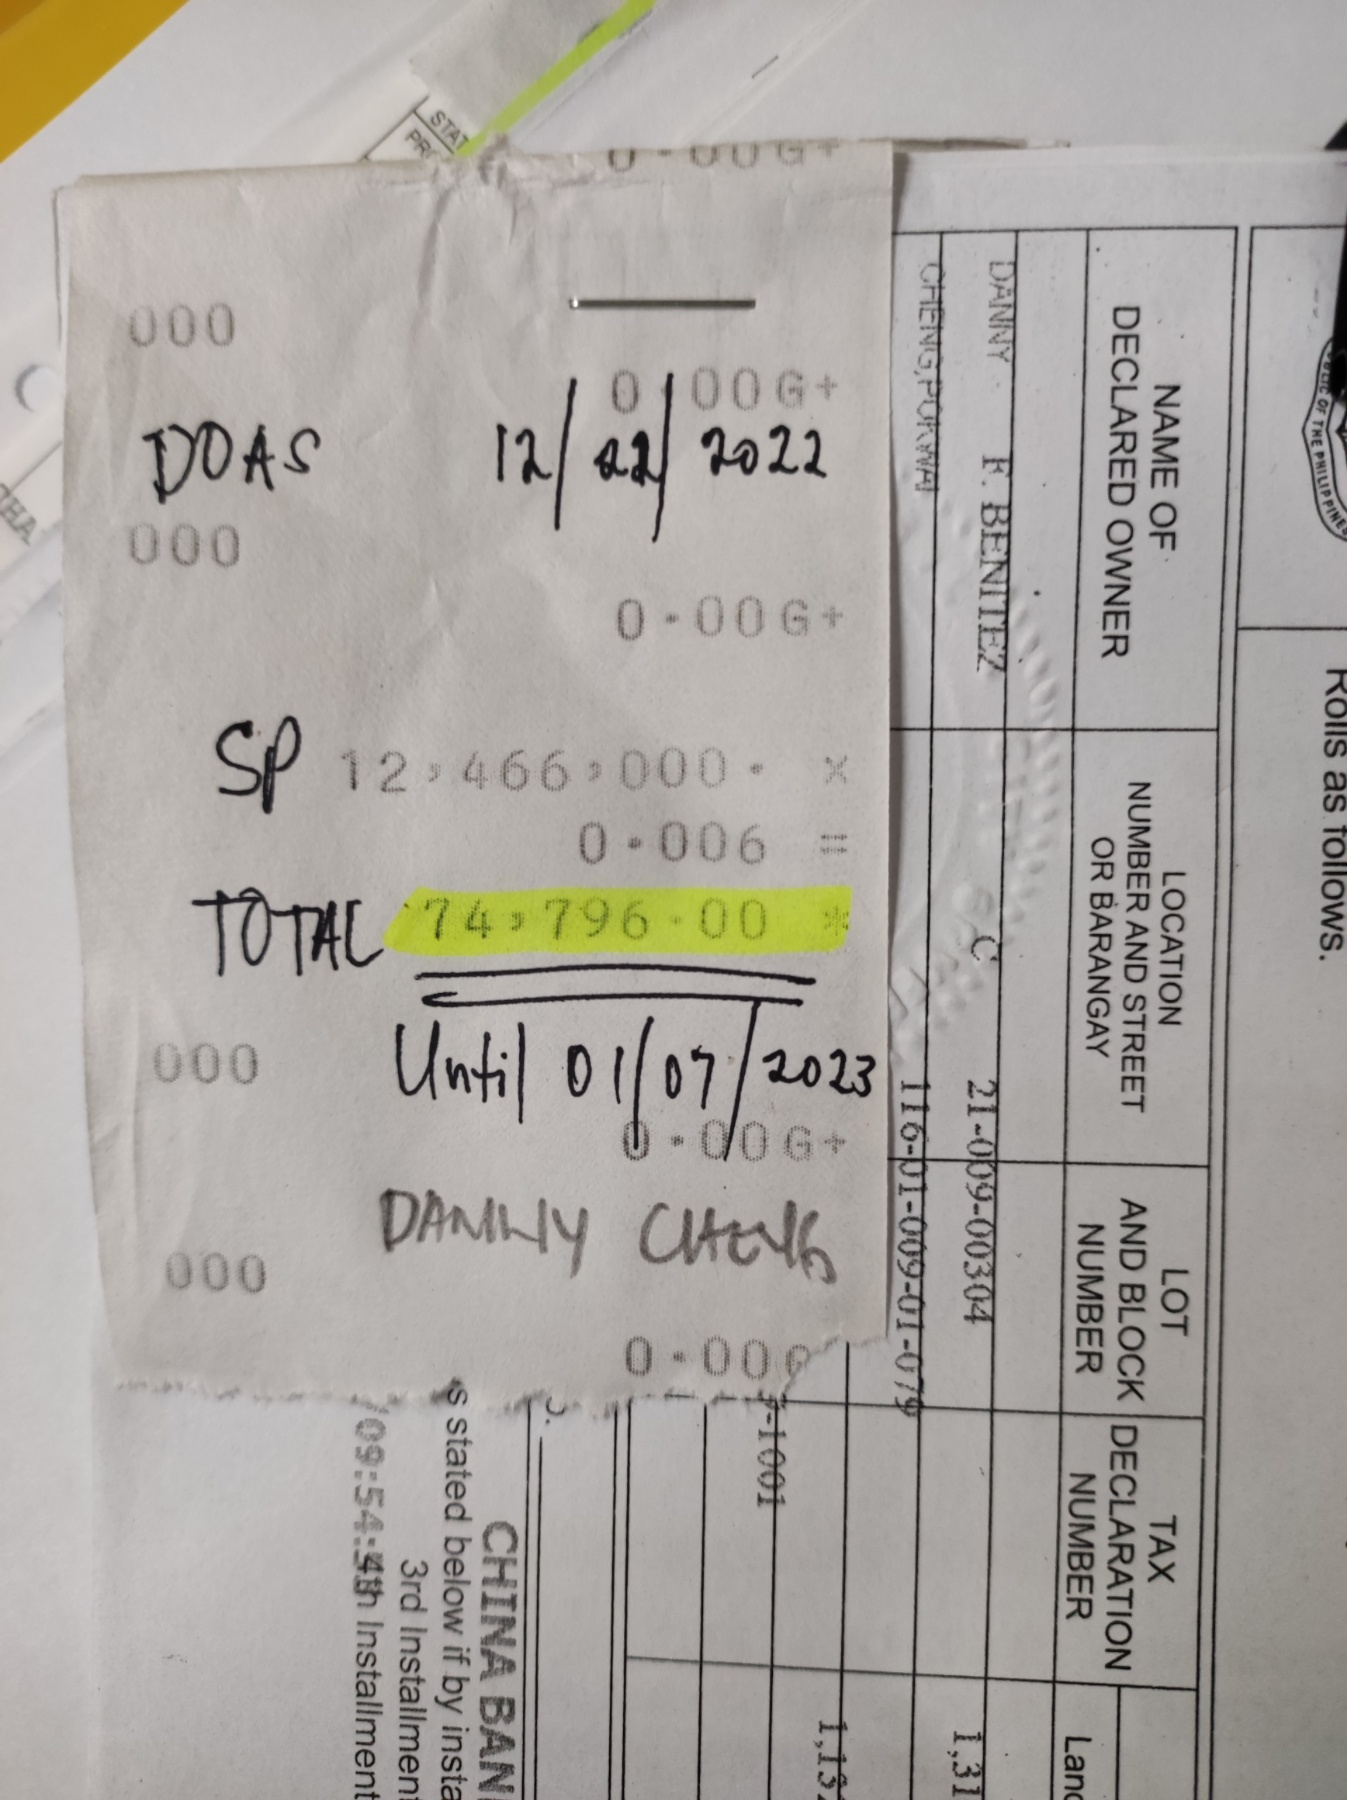 0.00G+
000
0.00G+
DOAS 12/22/2022
000
0.00G+
SP 12,466,000. x
0.006 =
TOTAL 74,796.00 *
000
Until 01/07/2023
0.00G+
DANNY CHENG
000
0.00G
STAT
Rolls as follows.
NAME OF
DECLARED OWNER
LOCATION
NUMBER AND STREET
OR BARANGAY
LOT
AND BLOCK
NUMBER
TAX
DECLARATION
NUMBER
Land
DANNY F. BENITEZ C 21-009-00304 1,31
116-01-009-01-079
1,132
-1001
CHINA BAN
s stated below if by insta
3rd Installment
09:54: 4th Installment
OF THE PHILIPPINES